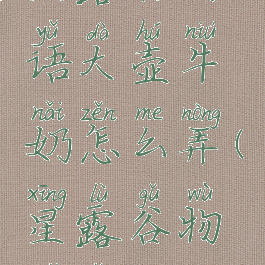 yǔ dà hú niú
语大壶牛
nǎi zěn me nòng
奶怎么弄(
xīng lù gǔ wù
星露谷物